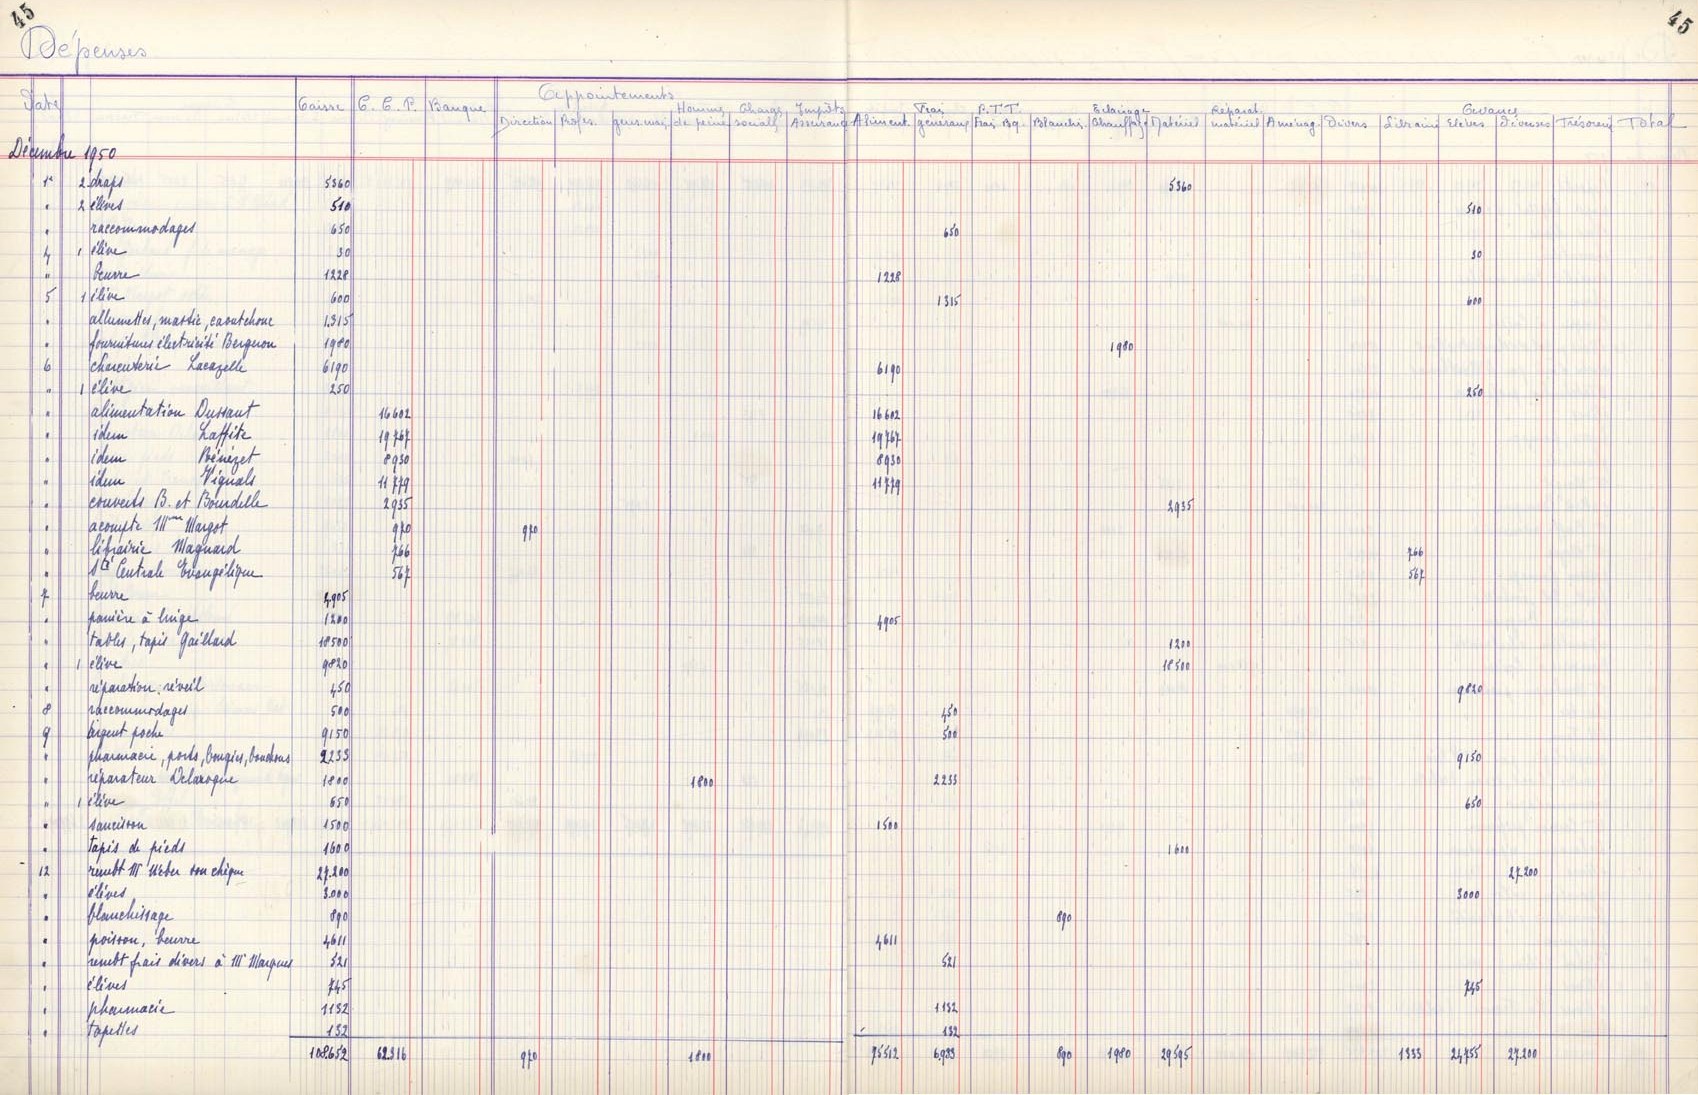 45
45
Dépenses
Date Caisse C.C.P. Banque Appointements Direction Profes. Homme de peine Charges sociales Impôts Assurance Aliment. Frais généraux P.T.T. Frais Bq. Blanchi. Eclairage Chauffage Matériel Réparat. matériel Aménag. Divers Librairie Avances Elèves Diverses Trésorerie Total
Décembre 1950
1er 2 draps 5360 5360
" 2 élèves 510 510
" raccommodages 650 650
4 1 élève 30 30
" beurre 1228 1228
5 1 élève 600 600
" allumettes, mastic, caoutchouc 1315 1315
" fournitures électricité Bergnon 1980 1980
6 charcuterie Lacazelle 6190 6190
" 1 élève 250 250
" alimentation Dussaut 16602 16602
" idem Laffite 19767 19767
" idem Bénézet 8930 8930
" idem Vignals 11779 11779
" couverts B. et Bourdelle 2935 2935
" acompte Mme Margot 970 970
" librairie Magnard 766 766
" Sté Centrale Evangélique 567 567
7 beurre 4905 4905
" panière à linge 1200 1200
" tables, tapis Gaillard 18500 18500
" 1 élève 9820 9820
" réparation réveil 450 450
8 raccommodages 500 500
9 argent poche 9150 9150
" pharmacie, ports, bougies, bouchons 2233 2233
" réparateur Delarogue 1800 1800
" 1 élève 650 650
" saucisson 1500 1500
" tapis de pieds 1600 1600
12 rembt Mr Weber son chèque 27.200 27.200
" élèves 3.000 3000
" blanchissage 890 890
" poisson, beurre 4611 4611
" rembt frais divers à Mr Marques 521 521
" élèves 745 745
" pharmacie 1132 1132
" tapettes 132 132
108.652 62.316 970 1800 75512 6.933 890 1980 29595 1333 24.755 27.200